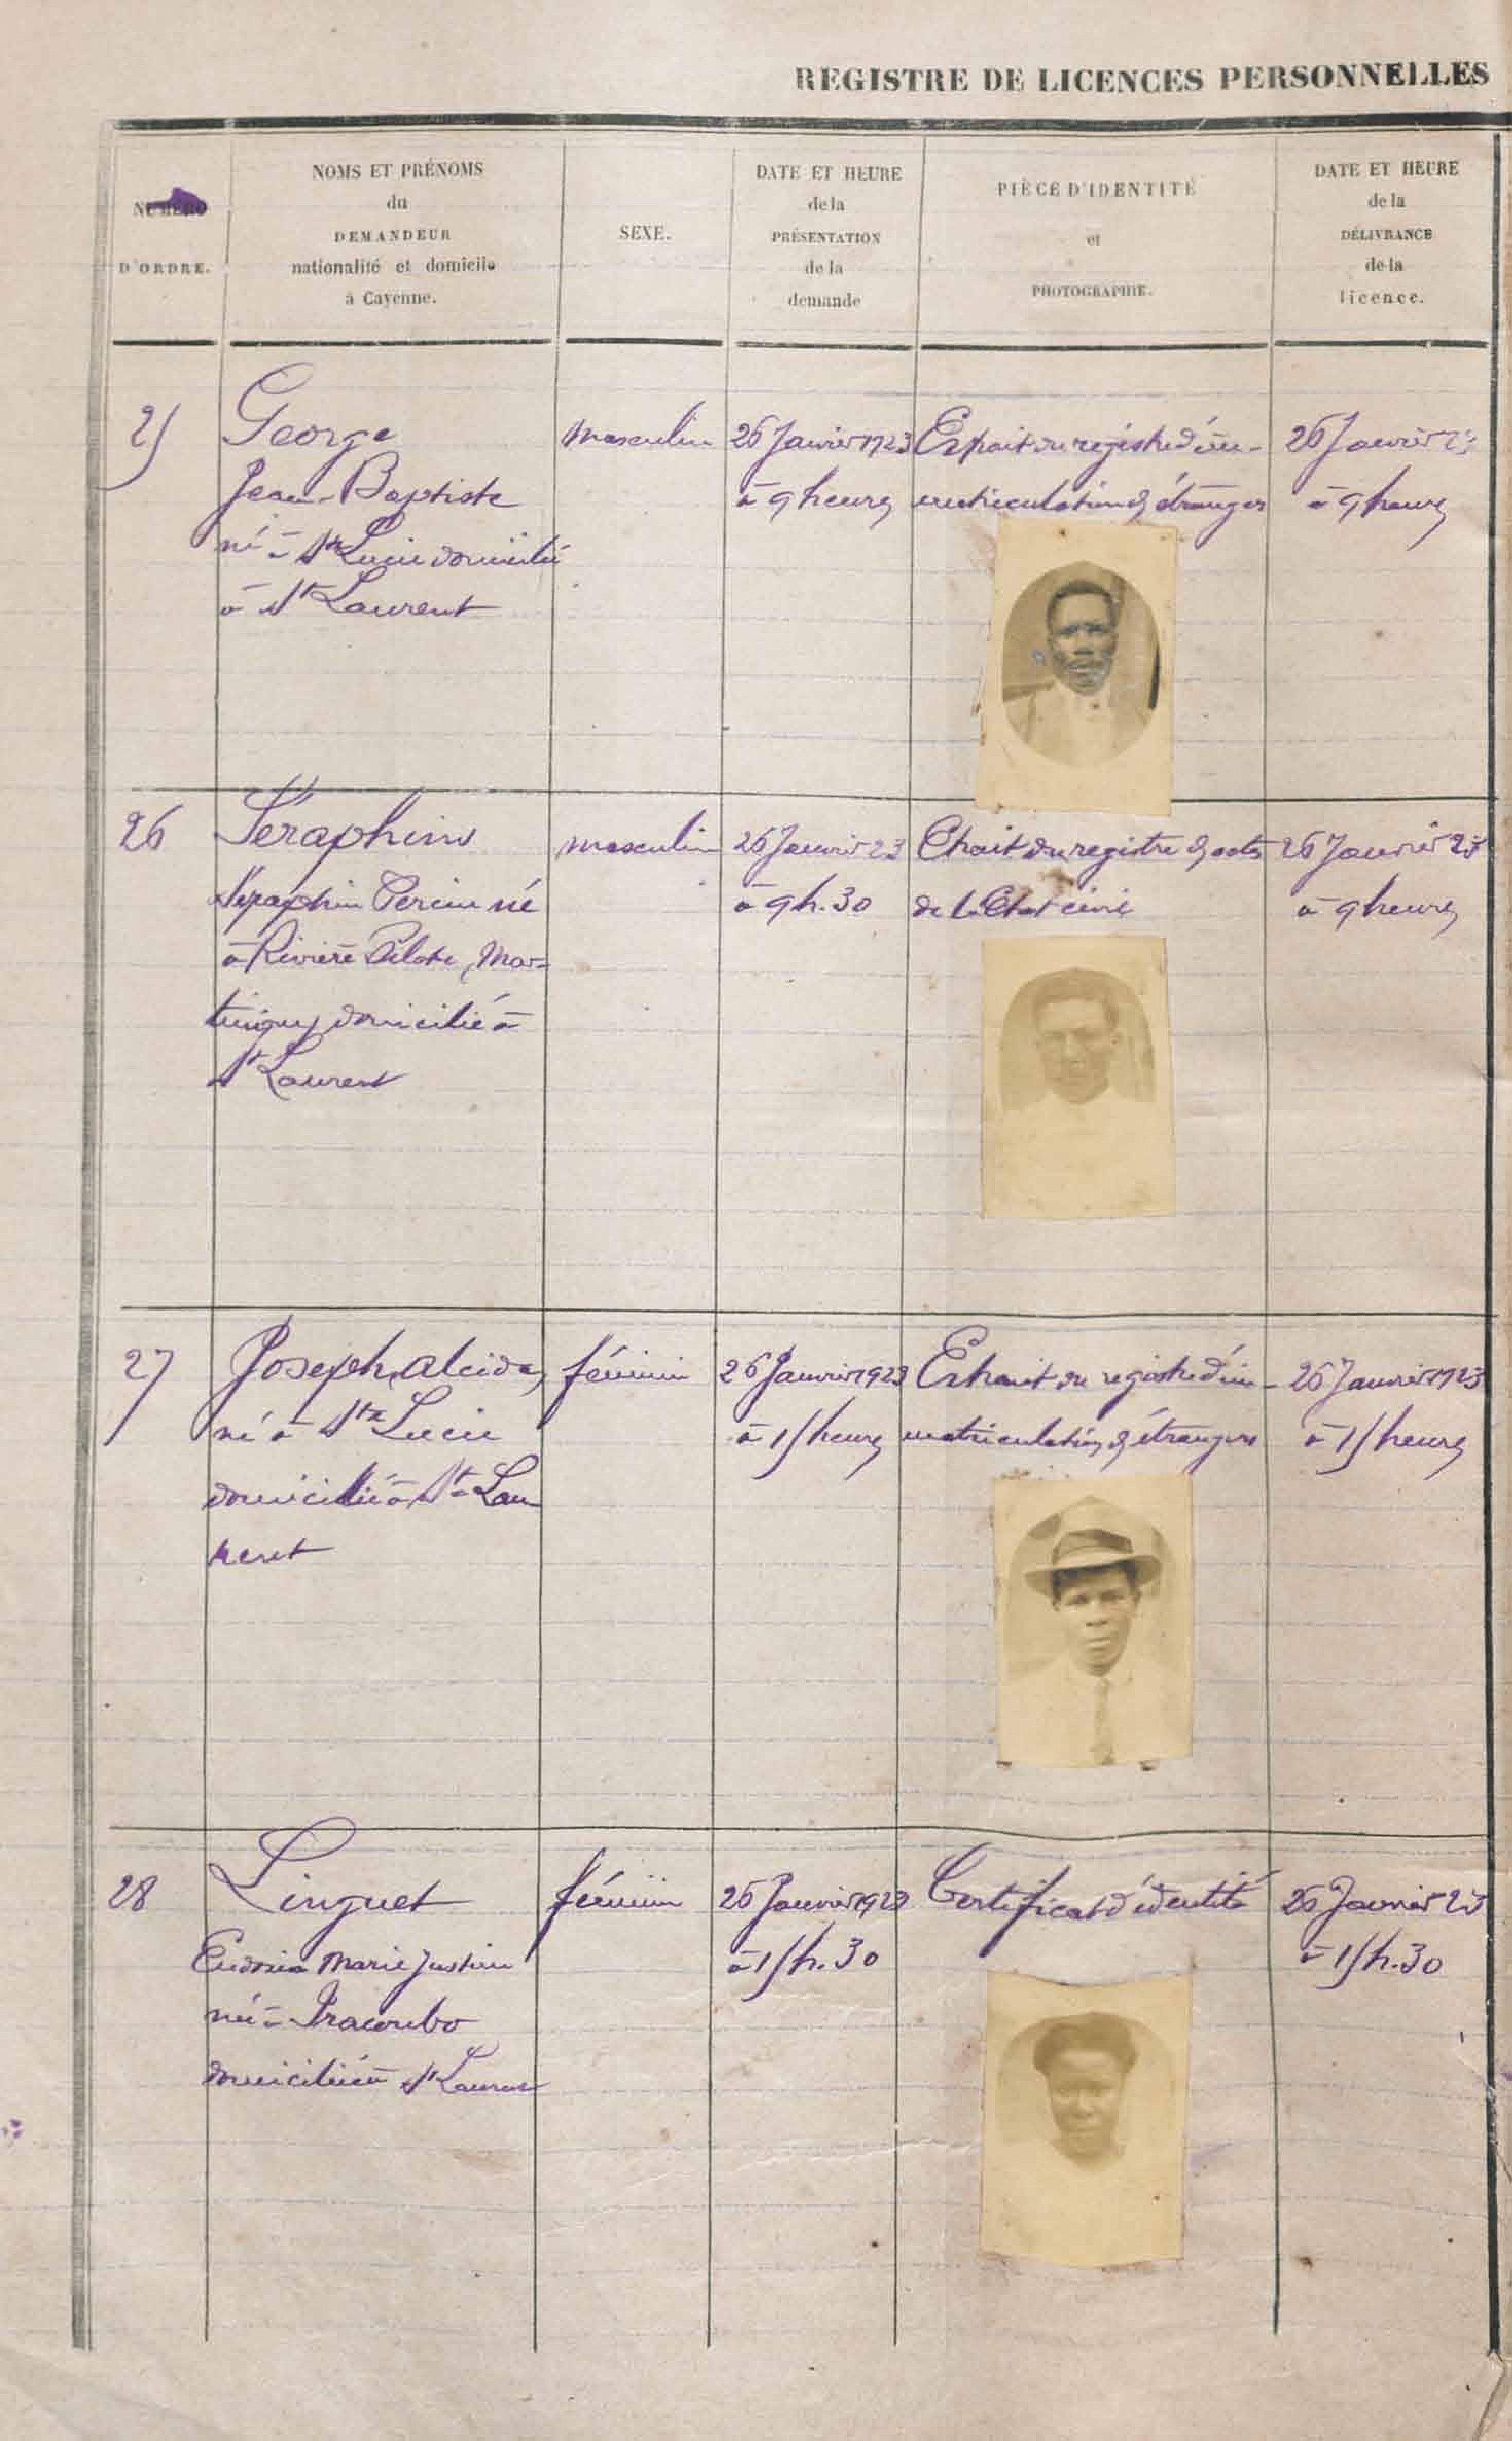 REGISTRE DE LICENCES PERSONNELLES
NUMÉRO
D'ORDRE.
NOMS ET PRÉNOMS
du
DEMANDEUR
nationalité et domicile
à Cayenne.
SEXE.
DATE ET HEURE
de la
PRÉSENTATION
de la
demande
PIÈCE D'IDENTITÉ
et
PHOTOGRAPHIE.
DATE ET HEURE
de la
DÉLIVRANCE
de la
licence.
25
George
Jean-Baptiste
né à Ste Lucie domicilié
à St Laurent
masculin
26 Janvier 1923
à 9 heures
Extrait du registre d'im-
matriculation des étrangers
26 Janvier 23
à 9 heures
26
Séraphins
Séraphin né
à Rivière Pilote, Mar-
tinique domicilié à
St Laurent
masculin
26 Janvier 23
à 9h.30
du registre des actes
de l'Etat civil
26 Janvier 23
à 9 heures
27
Joseph, Alcide,
né à Ste Lucie
domicilié à St Lau
rent
féminin
26 Janvier 1923
à 15 heures
Extrait du registre d'im-
matriculation des étrangers
26 Janvier 1923
à 15 heures
28
Linguet
Marie Justine
née à Iracoubo
domiciliée à St Laurent
féminin
26 Janvier 1923
à 15h.30
Certificat d'identité
26 Janvier 23
à 15h.30